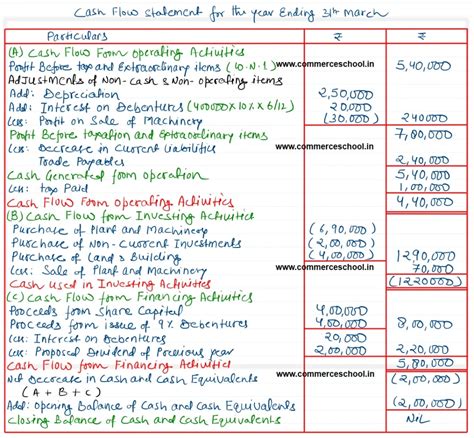 Cash Flow Statement for the year Ending 31st March
Particulars ₹ ₹
(A) Cash Flow From operating Activities
Profit Before tax and Extraordinary items (W.N.1) www.commerceschool.in 5,40,000
Adjustments of Non-Cash & Non-operating items
Add: Depreciation 2,50,000
Add: Interest on Debentures (400000x10%x6/12) 20,000
Less: Profit on Sale of Machinery (30,000) 240000
Profit Before taxation and Extraordinary items 7,80,000
Less: Decrease in Current Liabilities www.commerceschool.in
Trade Payables 2,40,000
Cash Generated from operation 5,40,000
Less: tax Paid 1,00,000
Cash Flow From operating Activities 4,40,000
(B) Cash Flow from Investing Activities
Purchase of Plant and Machinery (6,90,000)
Purchase of Non-Current Investments (2,00,000)
Purchase of Land & Building (4,00,000) 1290,000
Less: Sale of Plant and Machinery www.commerceschool.in 70,000
Cash used in Investing Activities (1220000)
(C) Cash Flow from Financing Activities
Proceeds from Share Capital 4,00,000
Proceeds from issue of 9% Debentures 4,00,000 8,00,000
Less: Interest on Debentures 20,000
Less: Proposed Dividend of Previous year 2,00,000 2,20,000
Cash Flow from Financing Activities 5,80,000
Net Decrease in Cash and Cash Equivalents www.commerceschool.in (2,00,000)
(A+B+C)
Add: opening Balance of Cash and Cash Equivalents (2,00,000)
Closing Balance of Cash and Cash Equivalents NIL